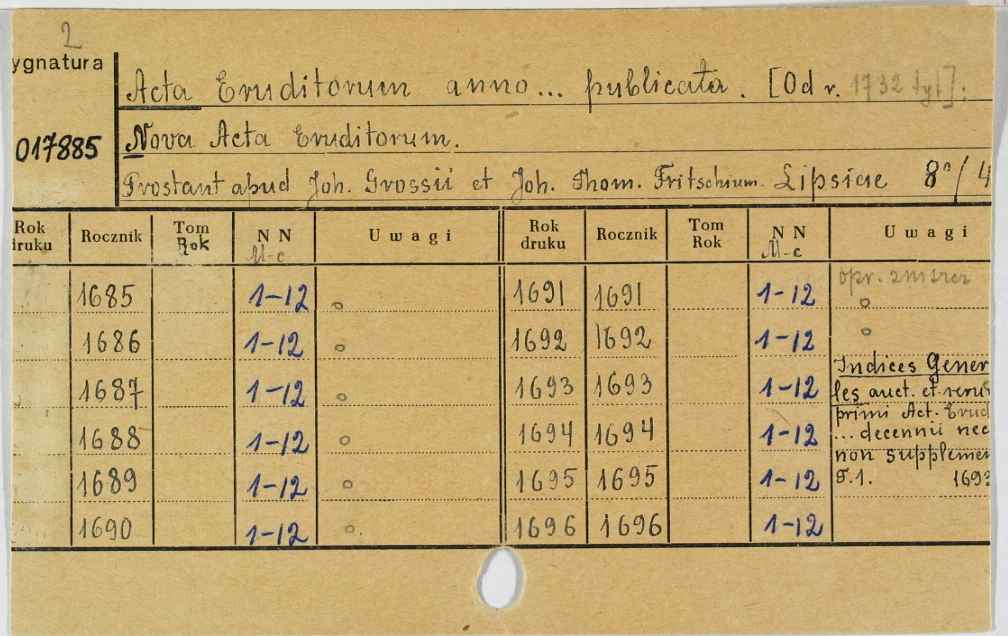 2
ygnatura
017885
Acta Eruditorum anno... publicata. [Od r. 1732 tyt]:
Nova Acta Eruditorum.
Prostant apud Joh. Grossii et Joh. Thom. Fritschium. Lipsiae 8°/4
Rok druku Rocznik Tom Rok NN M-c Uwagi Rok druku Rocznik Tom Rok NN M-c Uwagi
1685 1-12 o 1691 1691 1-12 opr. zniszcz o
1686 1-12 o 1692 1692 1-12 o
1687 1-12 o 1693 1693 1-12
1688 1-12 o 1694 1694 1-12
1689 1-12 o 1695 1695 1-12
1690 1-12 o 1696 1696 1-12
Indices Gener
les auct. et reru
primi Act. Erud
... decennii nec
non supplemen
T.1. 1693